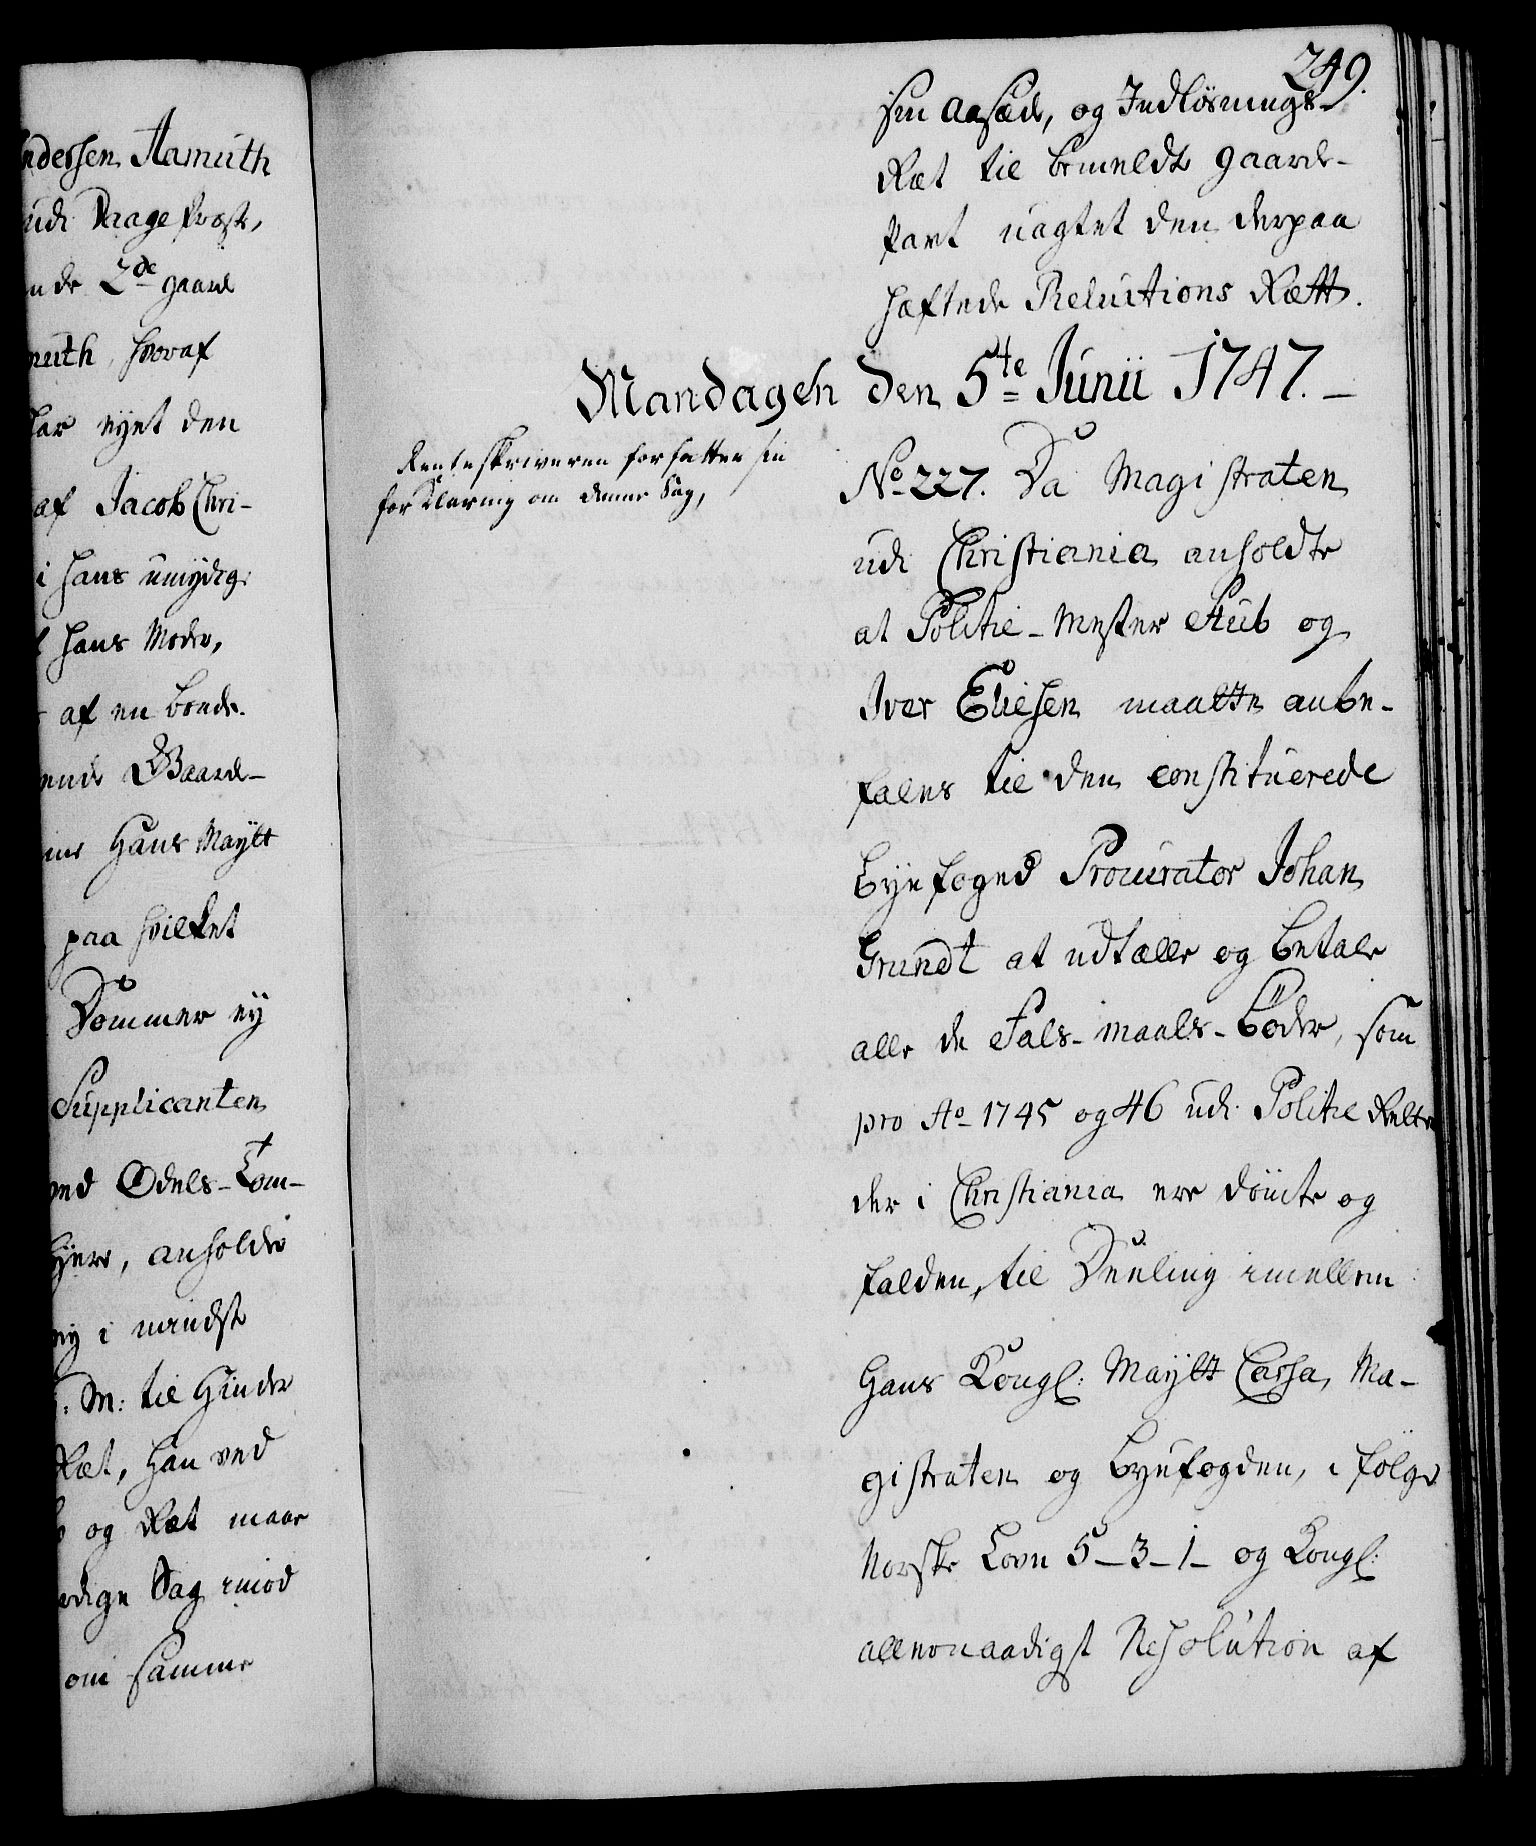 ndersen Aamuth
udi Vaage Præste,
nde 2de gaard
muth, hvoraf
har eyet den
af Jacob Chri-
i hans umyndige
hans Moder,
af en bonde.
ende Gaard-
Hans Maytt
paa hvilket
Dommer ey
Supplicanten
ved Odels-Lom-
hyere, anholder
ey i mindste
: M: til Hinder
Ræt, han ved
og Ræt maae
rdige Sag imod
om samme
249.
sin Aasæde, og Indløsnings-
Ræt til bemeldte gaarde-
part uagtet den derpaa
hæftede Reluitions Rætt.
Mandagen den 5te Junii 1747.
Renteskriveren forfatter sin
forklaring om denne Sag,
No 227. Da Magistraten
udi Christiania anholdte
at Politie-Mester Stub og
Iver Eliesen maatte anbe-
fales til den constituerede
Byefoged Procurator Johan
Grundt at udtælle og betale
alle de Fals-maals-Bøder, som
pro Ao 1745 og 46 udi Politie Retten
der i Christiania ere dømte og
falden, til Deeling imellem
Hans Kongl: Maytts Cassa, Ma-
gistraten og Byefogden, i følge
Norske Lovn 5-3-1- og Kongl:
allernaadigst Resolution af